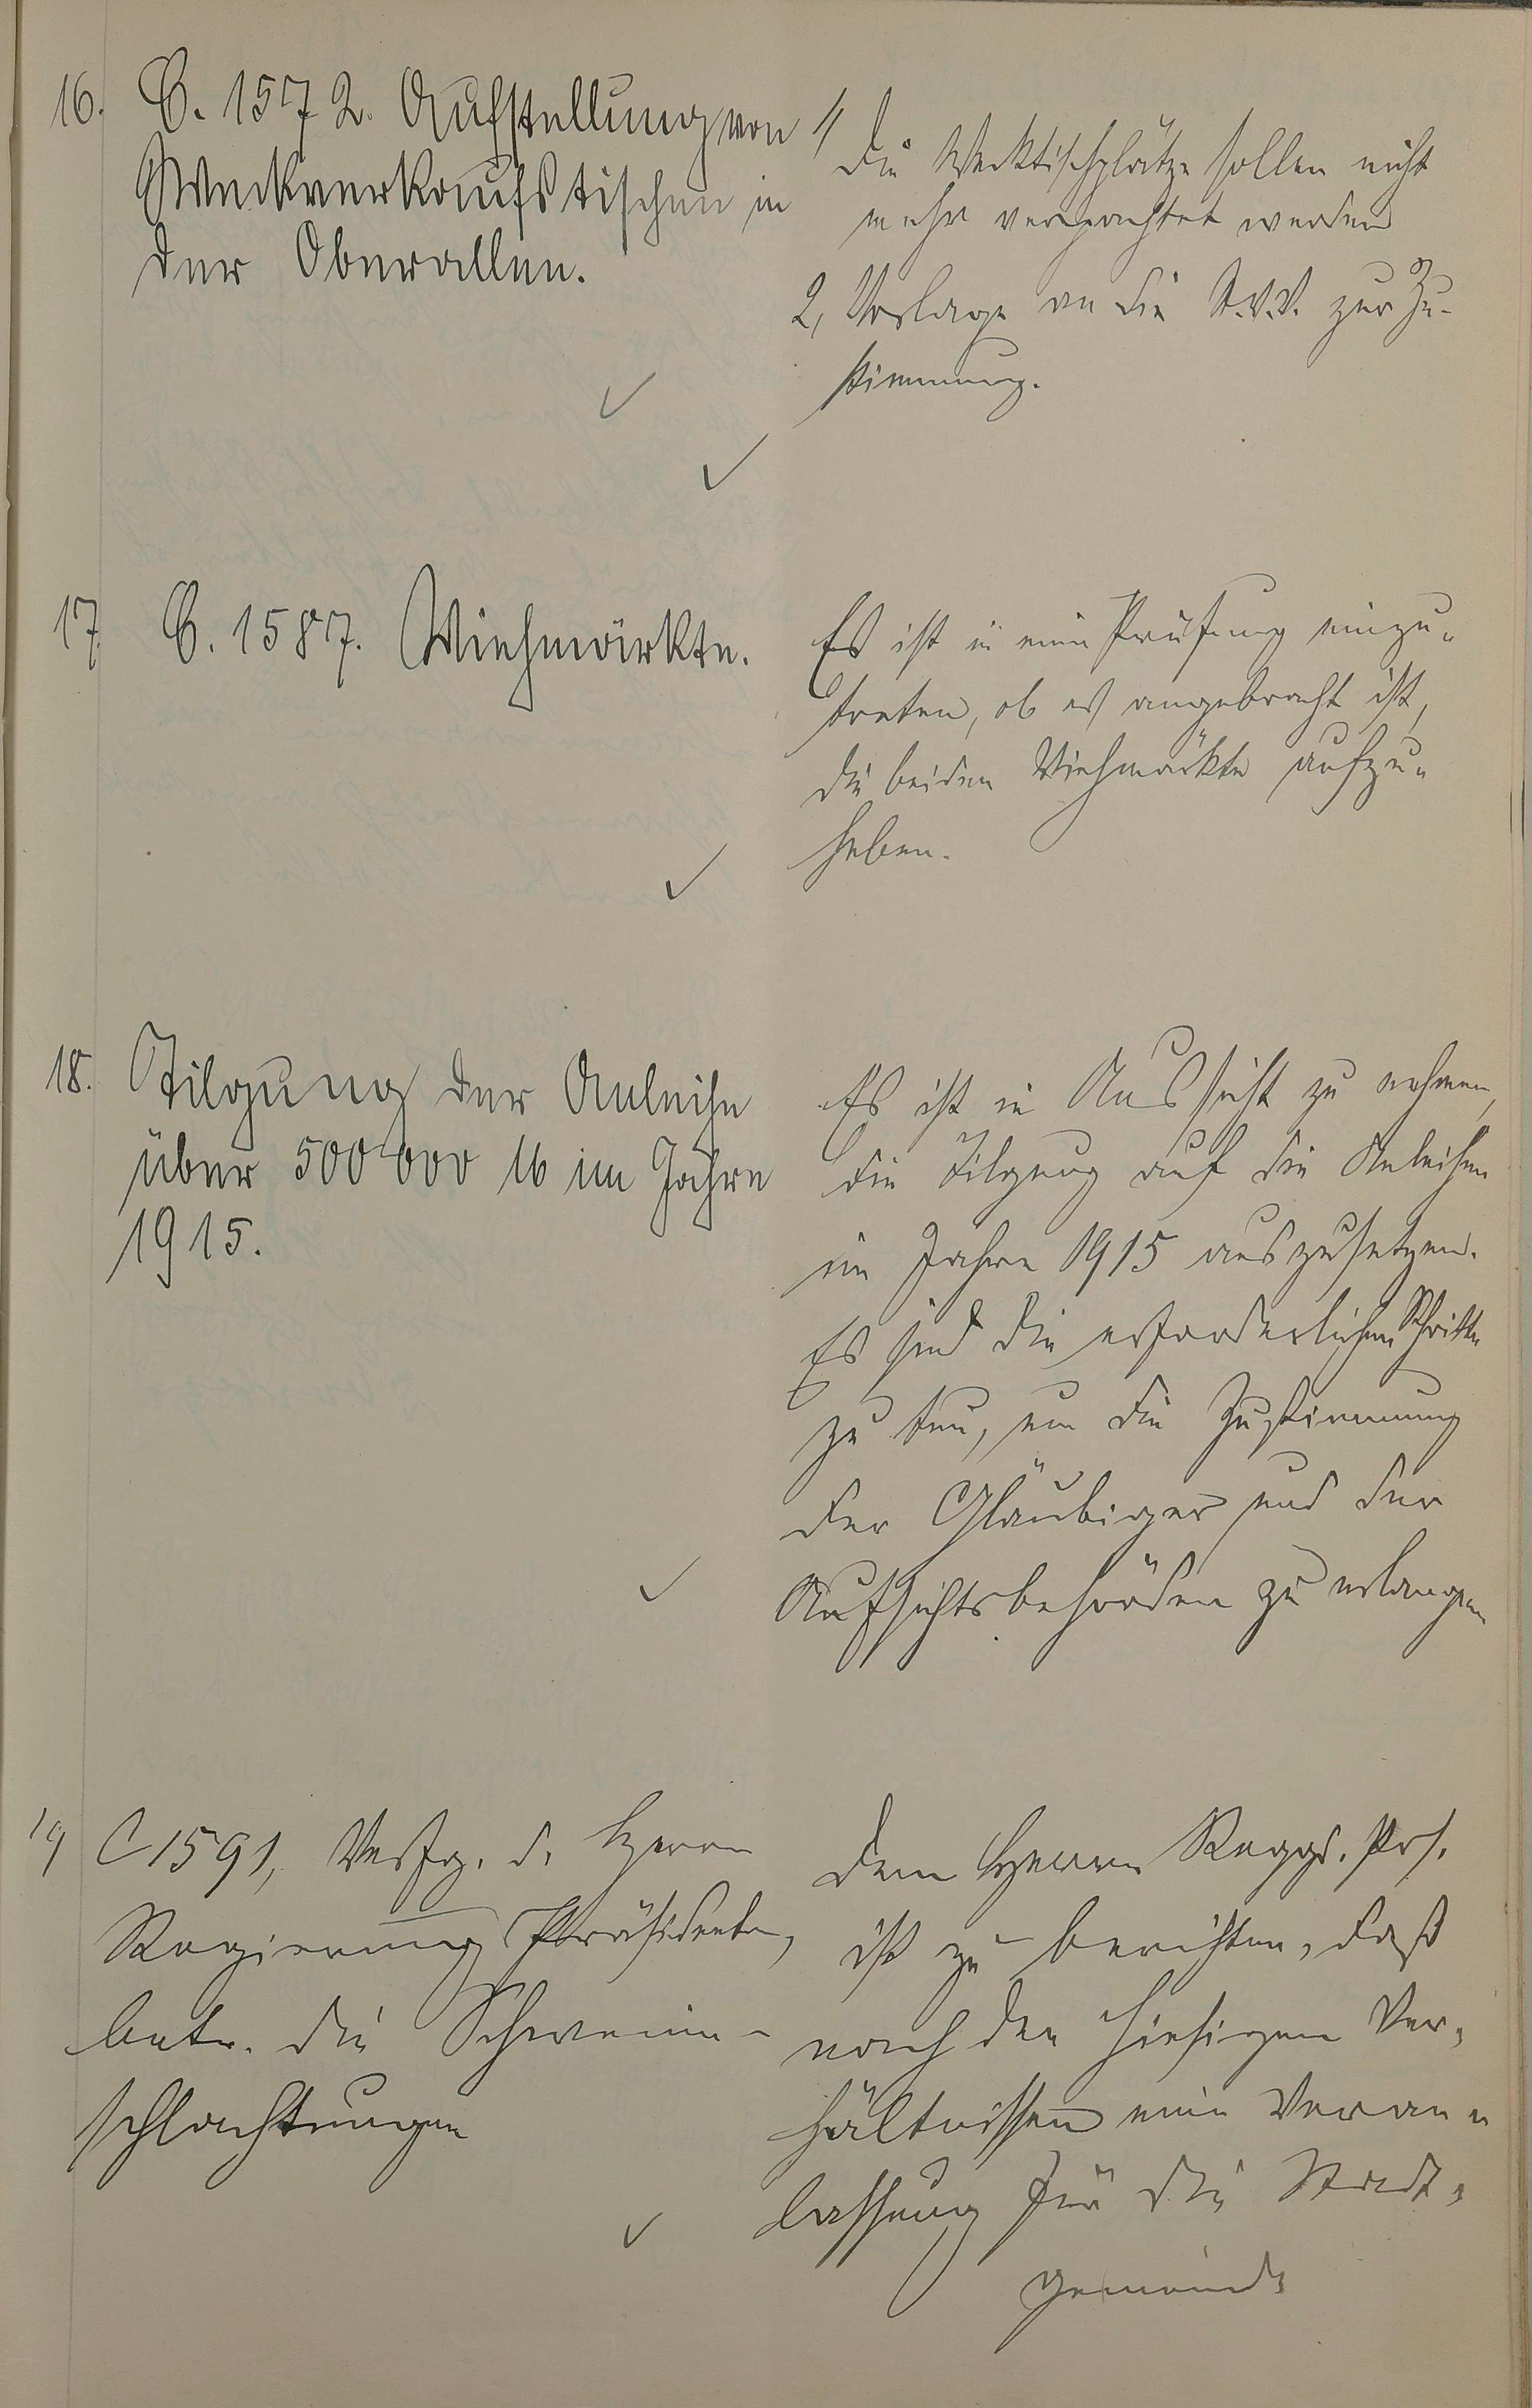 16. C. 1572. Aufstellung von
Weckverkaufstischen in
der Oberallee.
1, Die Wecktischplätze sollen nicht
mehr verpachtet werden
2, Vorlage an die St.V.V. zur Zu-
stimmung.
17. C. 1587. Viehmärkte.
Es ist in eine Prüfung einzu-
treten, ob es angebracht ist,
die beiden Viehmärkte aufzu-
heben.
18. Tilgung der Anleihe
über 500 000 M im Jahre
1915.
Es ist in Aussicht zu nehmen,
die Tilgung auf die Anleihen
im Jahre 1915 auszusetzen.
Es sind die erforderlichen Schritte
zu tun, um die Zustimmung
der Gläubiger und der
Aufsichtsbehörden zu erlangen
19 C 1591, Verfg. d. Herrn
Regierungs Präsidenten,
betr. die Schweine-
schlachtungen
Dem Herrn Reggs. Prs.
ist zu berichten, daß
nach den hiesigen Ver-
hältnissen eine Veran-
lassung für die Stadt-
gemeinde